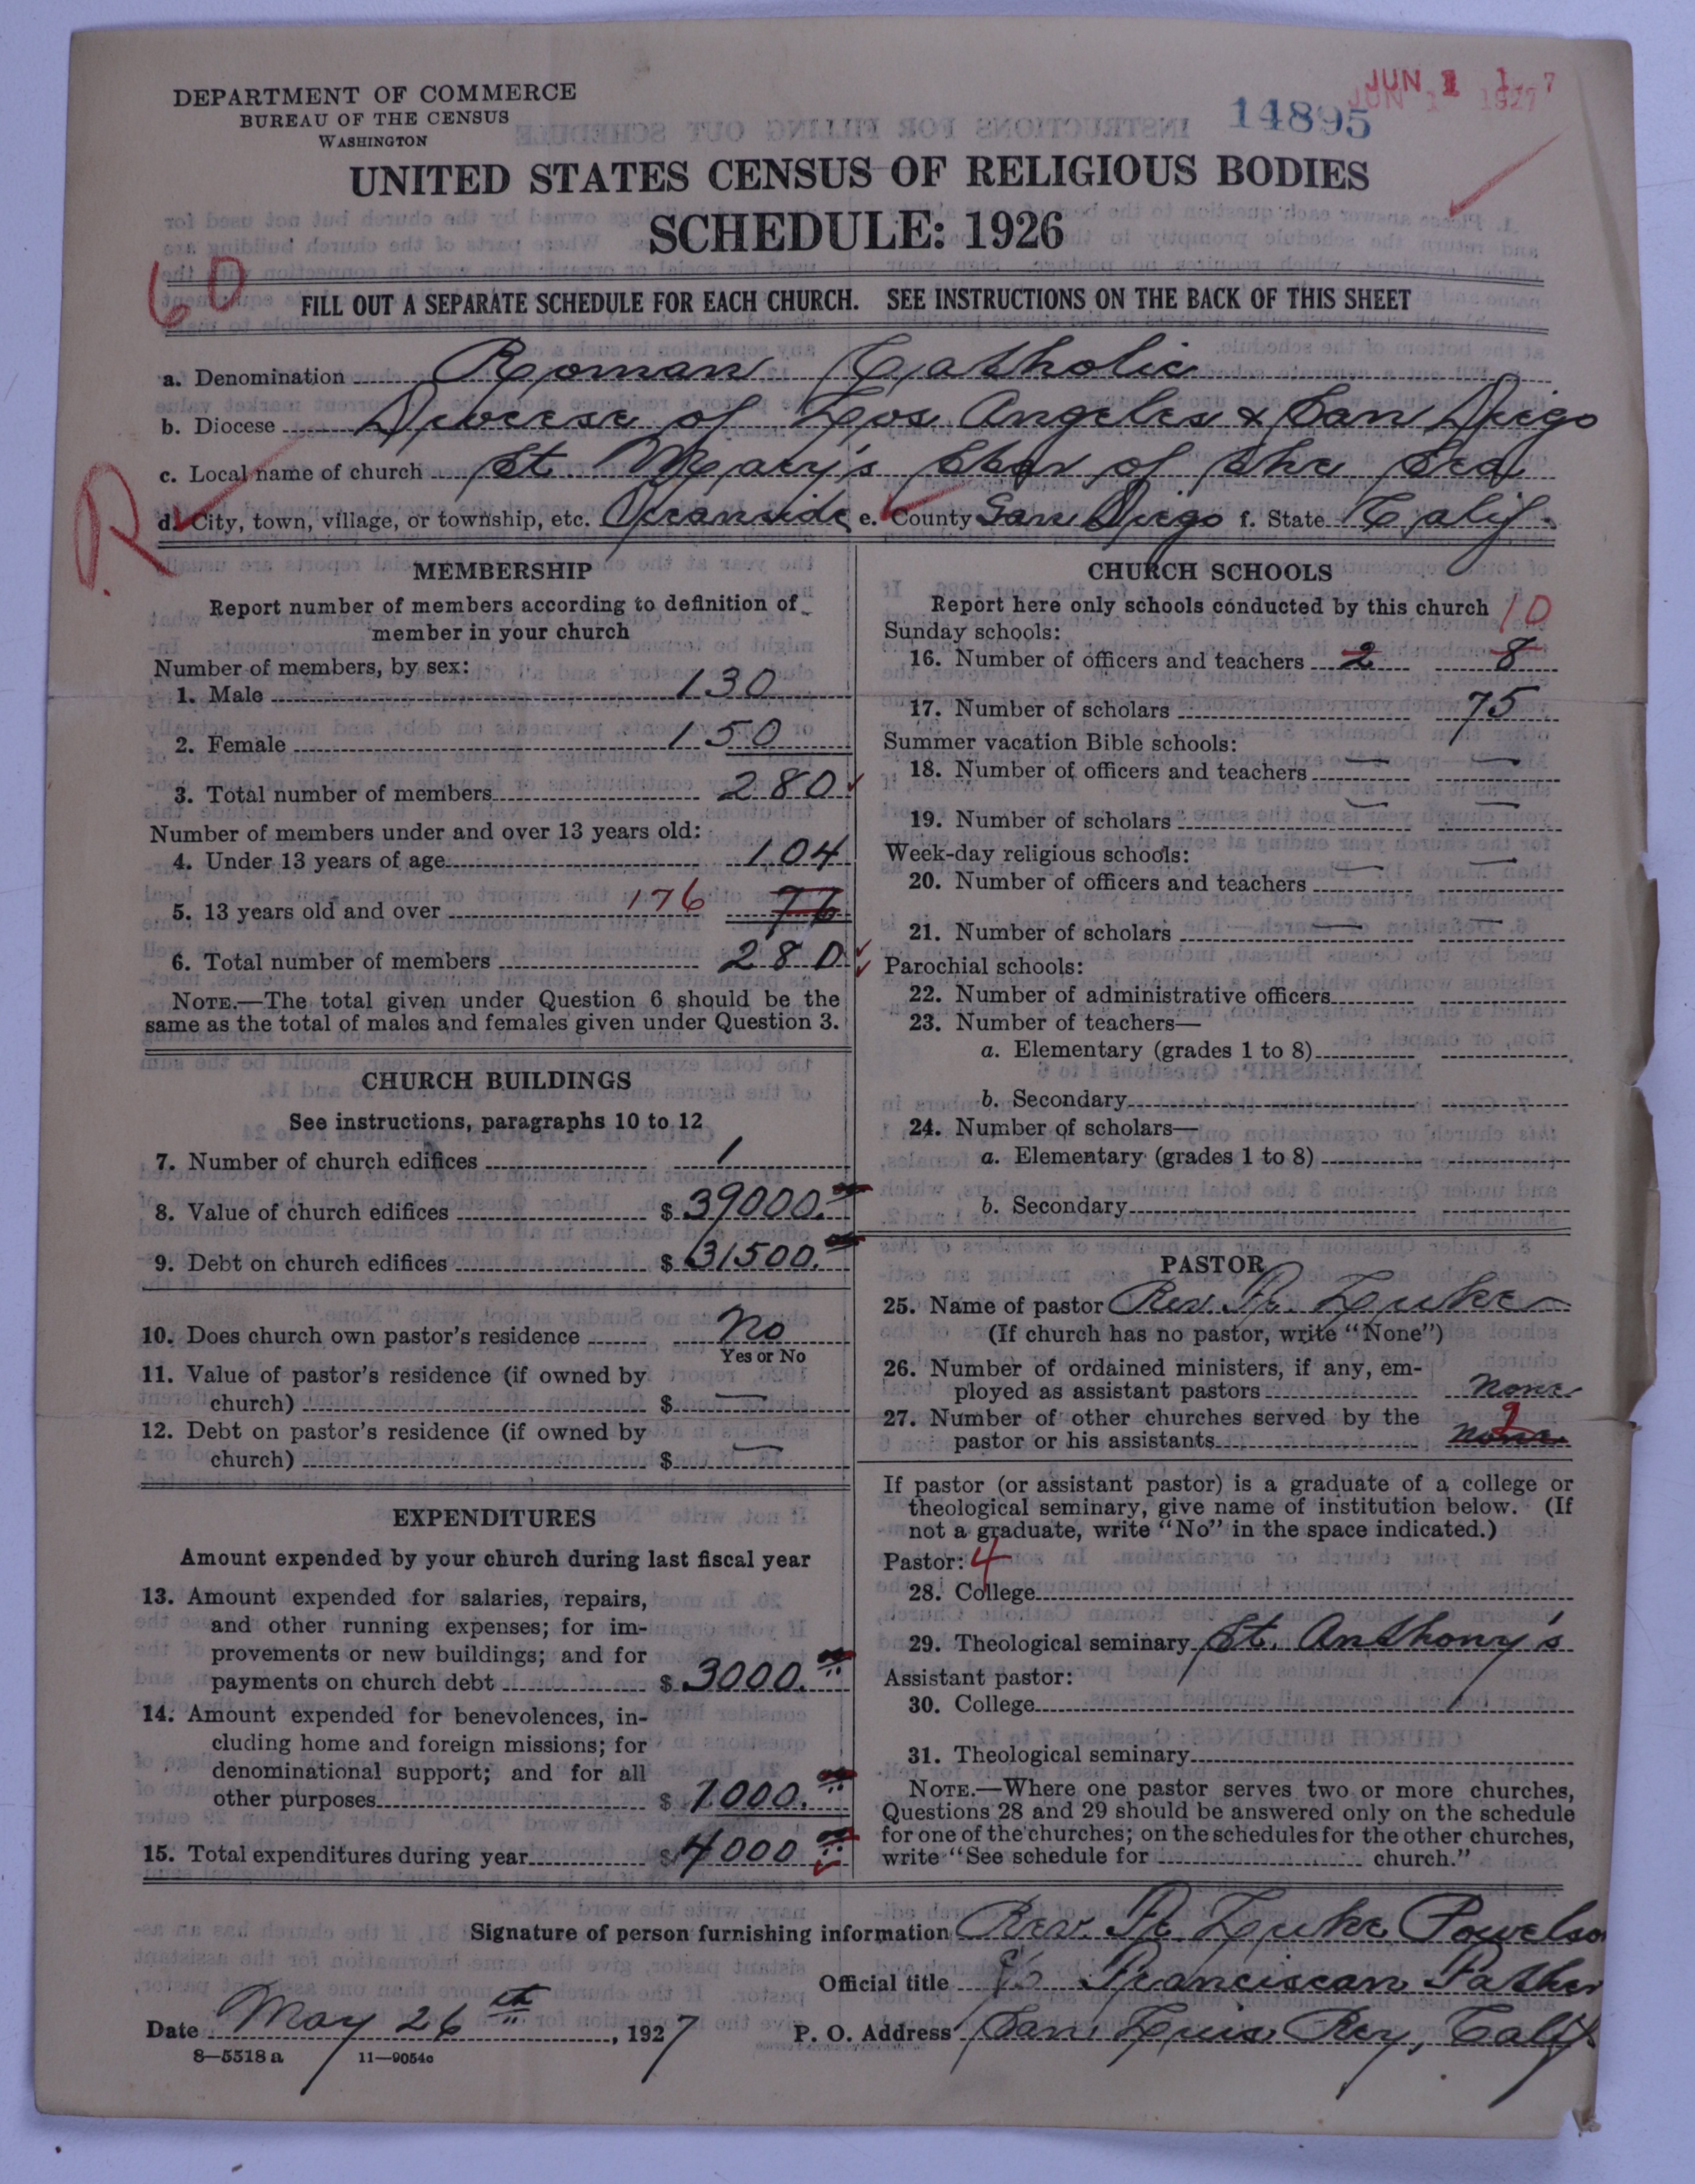 DEPARTMENT OF COMMERCE
BUREAU OF THE CENSUS
WASHINGTON
14895
JUN 1 1927
UNITED STATES CENSUS OF RELIGIOUS BODIES
SCHEDULE: 1926
60
FILL OUT A SEPARATE SCHEDULE FOR EACH CHURCH. SEE INSTRUCTIONS ON THE BACK OF THIS SHEET
a. Denomination Roman Catholic
b. Diocese Diocese of Los Angeles & San Diego
c. Local name of church St. Mary's Star of the Sea
R
d. City, town, village, or township, etc. Oceanside e. County San Diego f. State Calif.
MEMBERSHIP
Report number of members according to definition of
member in your church
Number of members, by sex:
1. Male 130
2. Female 150
3. Total number of members 280
Number of members under and over 13 years old:
4. Under 13 years of age 104
5. 13 years old and over 176 76
6. Total number of members 280
NOTE.—The total given under Question 6 should be the
same as the total of males and females given under Question 3.
CHURCH BUILDINGS
See instructions, paragraphs 10 to 12
7. Number of church edifices 1
8. Value of church edifices $ 39000.
9. Debt on church edifices $ 31500.
10. Does church own pastor's residence No
Yes or No
11. Value of pastor's residence (if owned by
church) $ —
12. Debt on pastor's residence (if owned by
church) $ —
EXPENDITURES
Amount expended by your church during last fiscal year
13. Amount expended for salaries, repairs,
and other running expenses; for im-
provements or new buildings; and for
payments on church debt $ 3000.
14. Amount expended for benevolences, in-
cluding home and foreign missions; for
denominational support; and for all
other purposes $ 1000.
15. Total expenditures during year $ 4000
CHURCH SCHOOLS
Report here only schools conducted by this church
10
Sunday schools:
16. Number of officers and teachers 2 8
17. Number of scholars 75
Summer vacation Bible schools:
18. Number of officers and teachers — —
19. Number of scholars — —
Week-day religious schools:
20. Number of officers and teachers — —
21. Number of scholars — —
Parochial schools:
22. Number of administrative officers
23. Number of teachers—
a. Elementary (grades 1 to 8)
b. Secondary
24. Number of scholars—
a. Elementary (grades 1 to 8)
b. Secondary
PASTOR
25. Name of pastor Rev. Fr. Luke
(If church has no pastor, write "None")
26. Number of ordained ministers, if any, em-
ployed as assistant pastors none
27. Number of other churches served by the
pastor or his assistants none
If pastor (or assistant pastor) is a graduate of a college or
theological seminary, give name of institution below. (If
not a graduate, write "No" in the space indicated.)
Pastor: 4
28. College
29. Theological seminary St. Anthony's
Assistant pastor:
30. College
31. Theological seminary
NOTE.—Where one pastor serves two or more churches,
Questions 28 and 29 should be answered only on the schedule
for one of the churches; on the schedules for the other churches,
write "See schedule for church."
Signature of person furnishing information Rev. Fr. Luke Powelson
Official title Franciscan Father
Date May 26th, 1927 P. O. Address San Luis Rey, Calif
8—5518 a 11—9054c